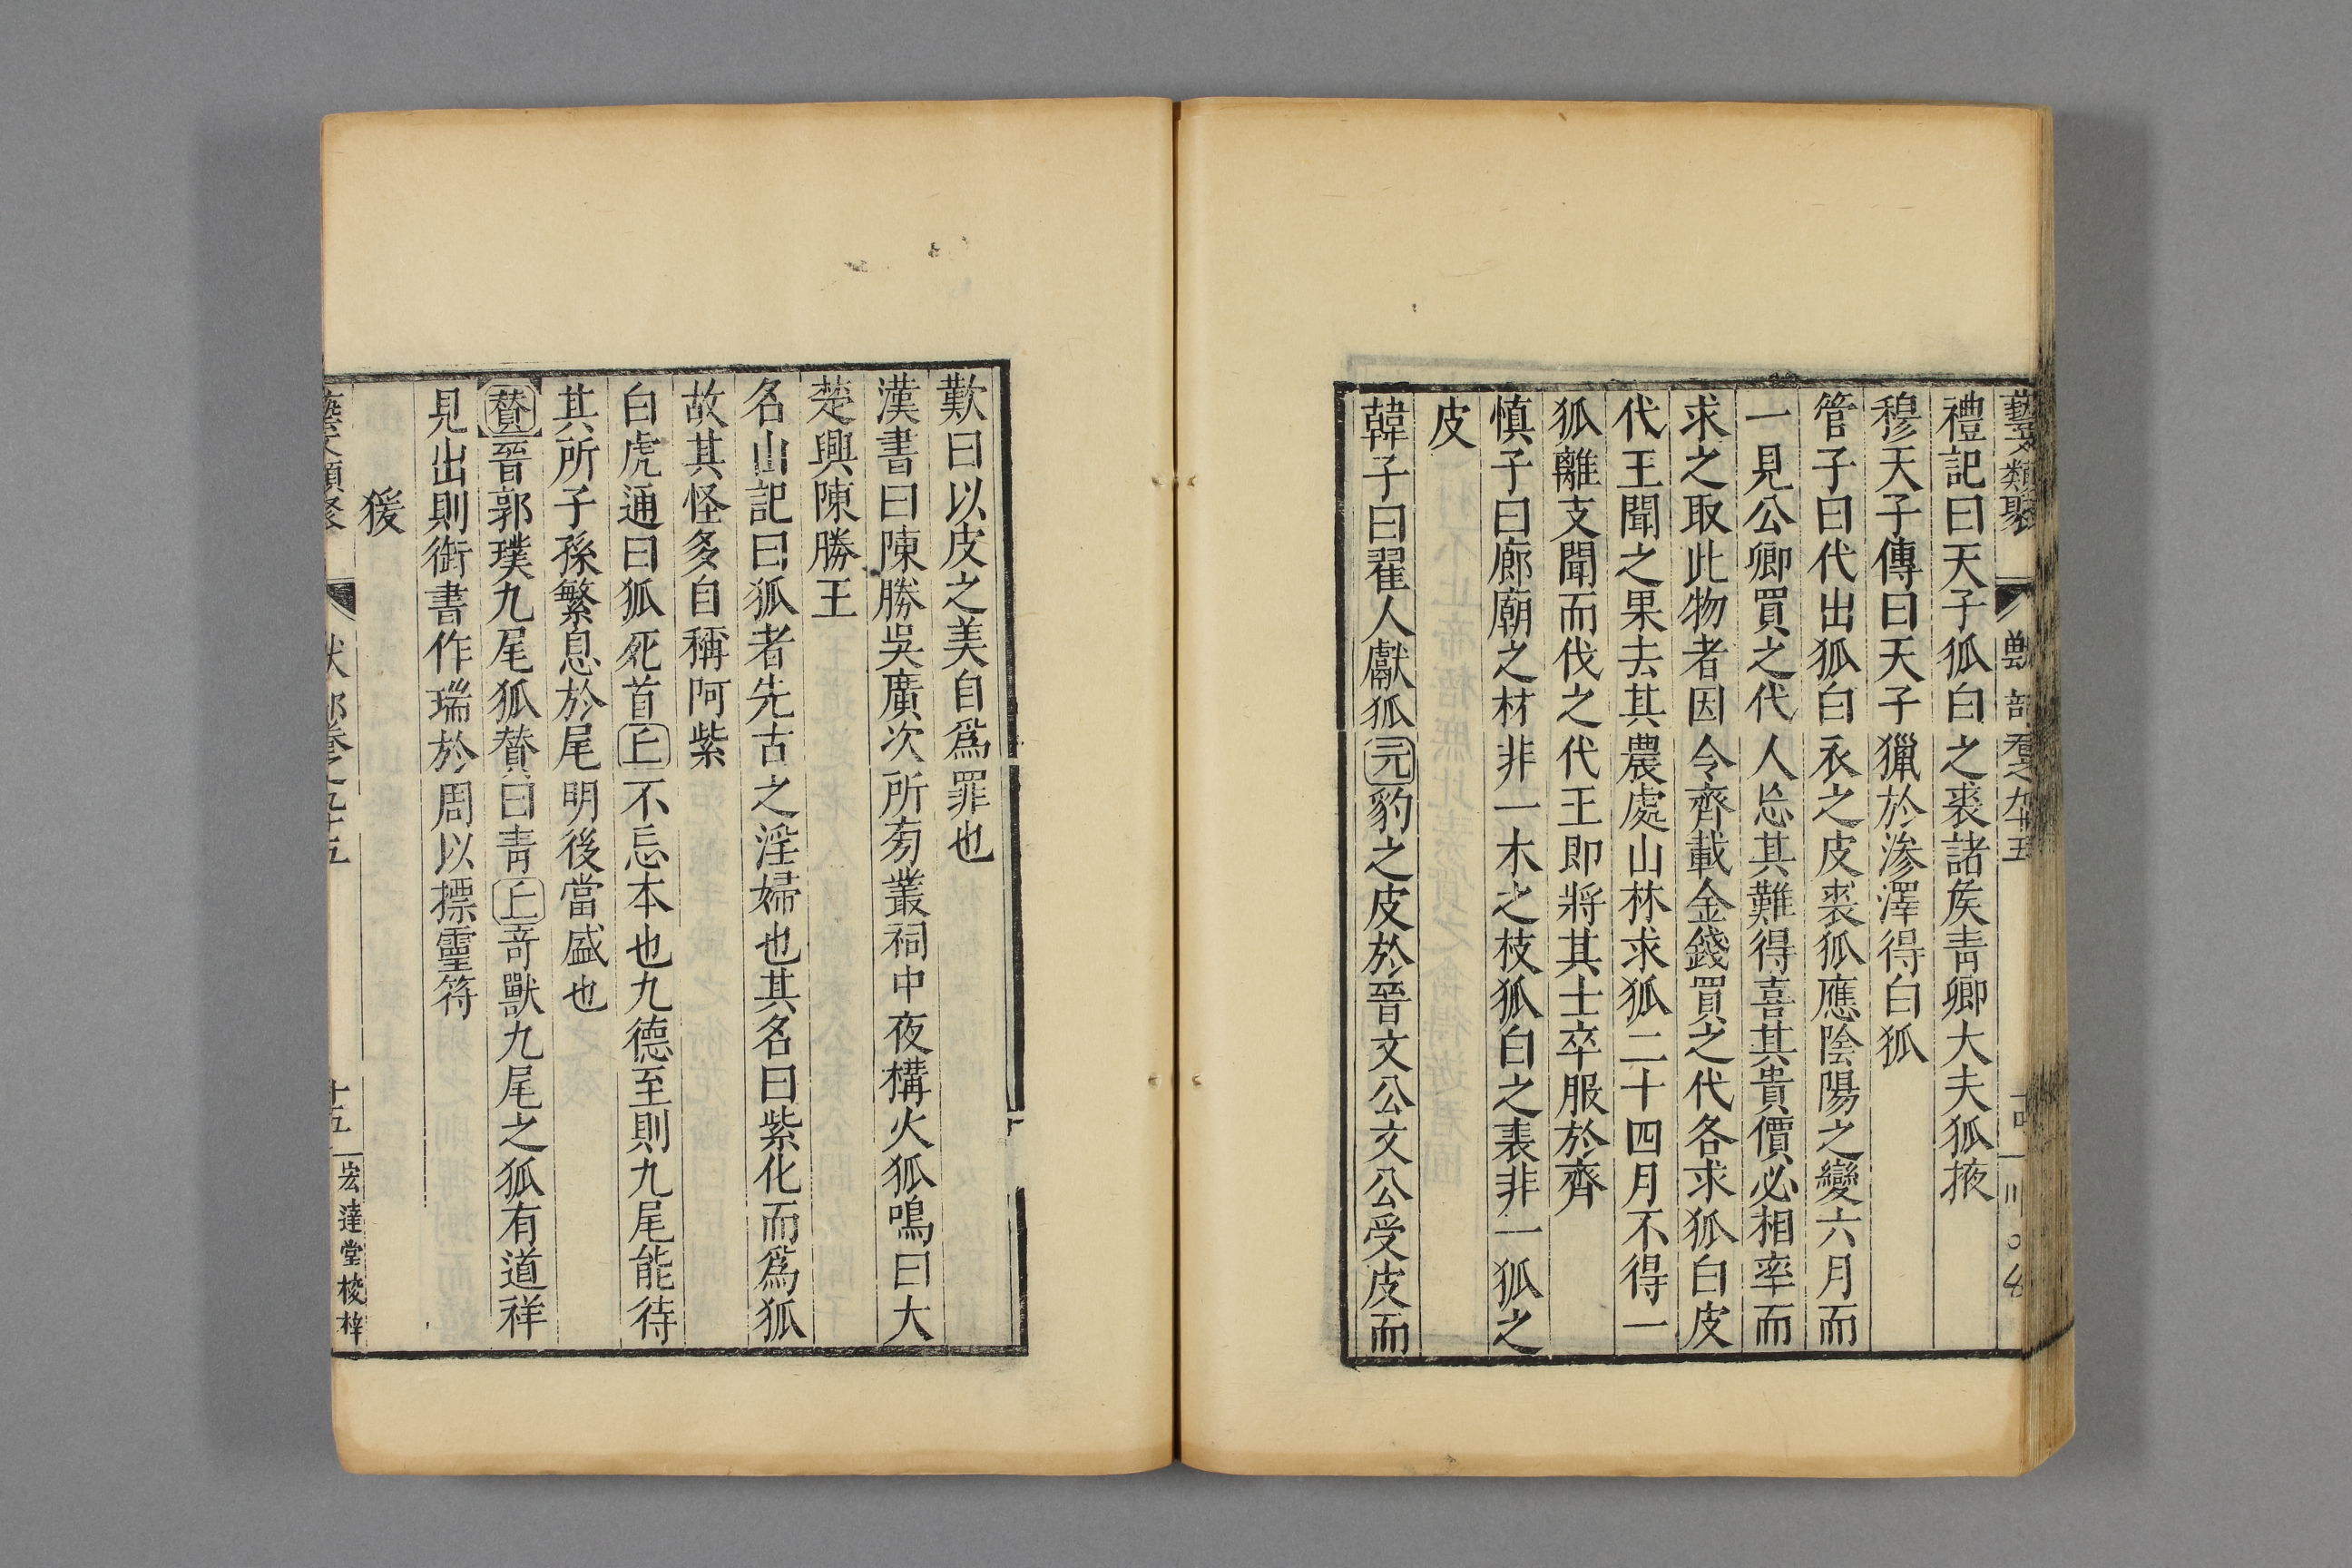 藝文類聚 獸部卷之九十五
禮記曰天子狐白之裘諸矦青卿大夫狐掖
穆天子傳曰天子獵於滲澤得白狐
管子曰代出狐白衣之皮裘狐應陰陽之變六月而
一見公卿買之代人忘其難得喜其貴價必相率而
求之取此物者因令齊載金錢買之代各求狐白皮
代王聞之果去其農處山林求狐二十四月不得一
狐離支聞而伐之代王即將其士卒服於齊
慎子曰廊廟之材非一木之枝狐白之裘非一狐之
皮
韓子曰翟人獻狐元豹之皮於晉文公文公受皮而
歎曰以皮之美自爲罪也
漢書曰陳勝吳廣次所旁叢祠中夜構火狐鳴曰大
楚興陳勝王
名山記曰狐者先古之淫婦也其名曰紫化而爲狐
故其怪多自稱阿紫
白虎通曰狐死首丘不忘本也九德至則九尾能待
其所子孫繁息於尾明後當盛也
贊晉郭璞九尾狐贊曰青丘奇獸九尾之狐有道祥
見出則銜書作瑞於周以摽靈符
猨
藝文類聚 獸部卷之九十五 十五 宏達堂梭梓